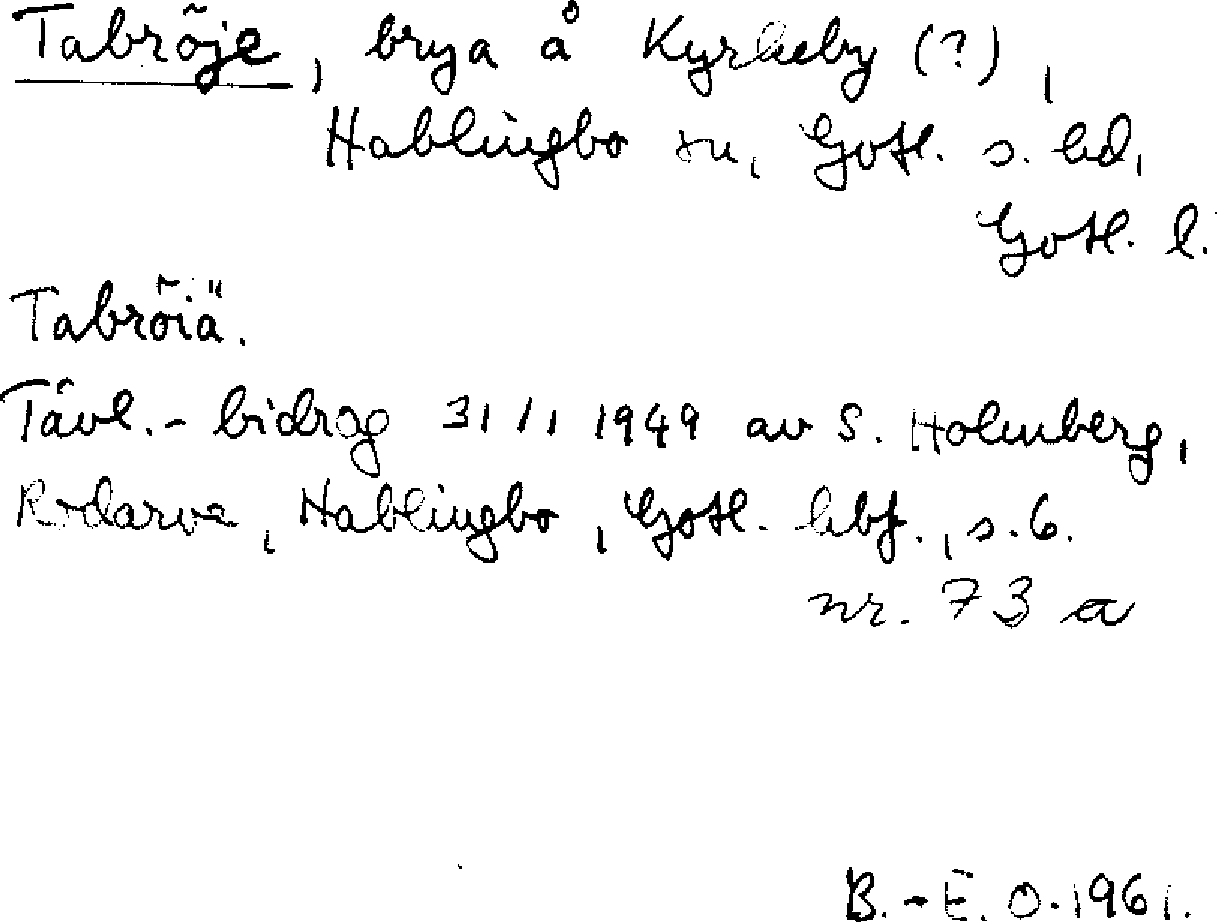 Tabröje, brya å Kyrkeby (?),
Hablingbo sn, Gotl. s. hd,
Gotl. l.
Tabröiä.
Tävl.- bidrag 31/1 1949 av S. Holmberg,
Rodarve, Hablingbo, Gotl. hbf., s. 6.
nr. 73 a
B.-E. O. 1961.